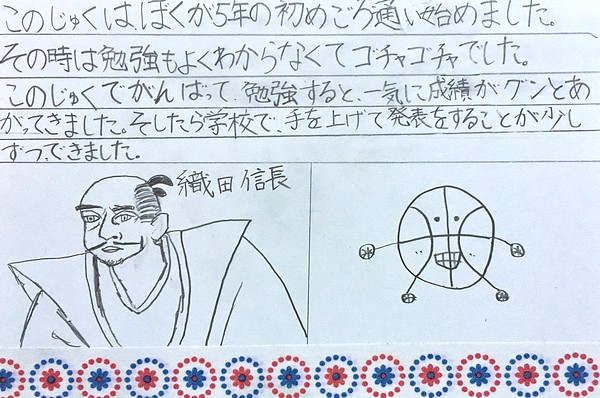 このじゅくは、ぼくが5年の初めごろ通い始めました。
その時は勉強もよくわからなくてゴチャゴチャでした。
このじゅくでがんばって、勉強すると、一気に成績がグンとあ
がってきました。そしたら学校で、手を上げて発表をすることが少し
ずつ、できました。
織田信長